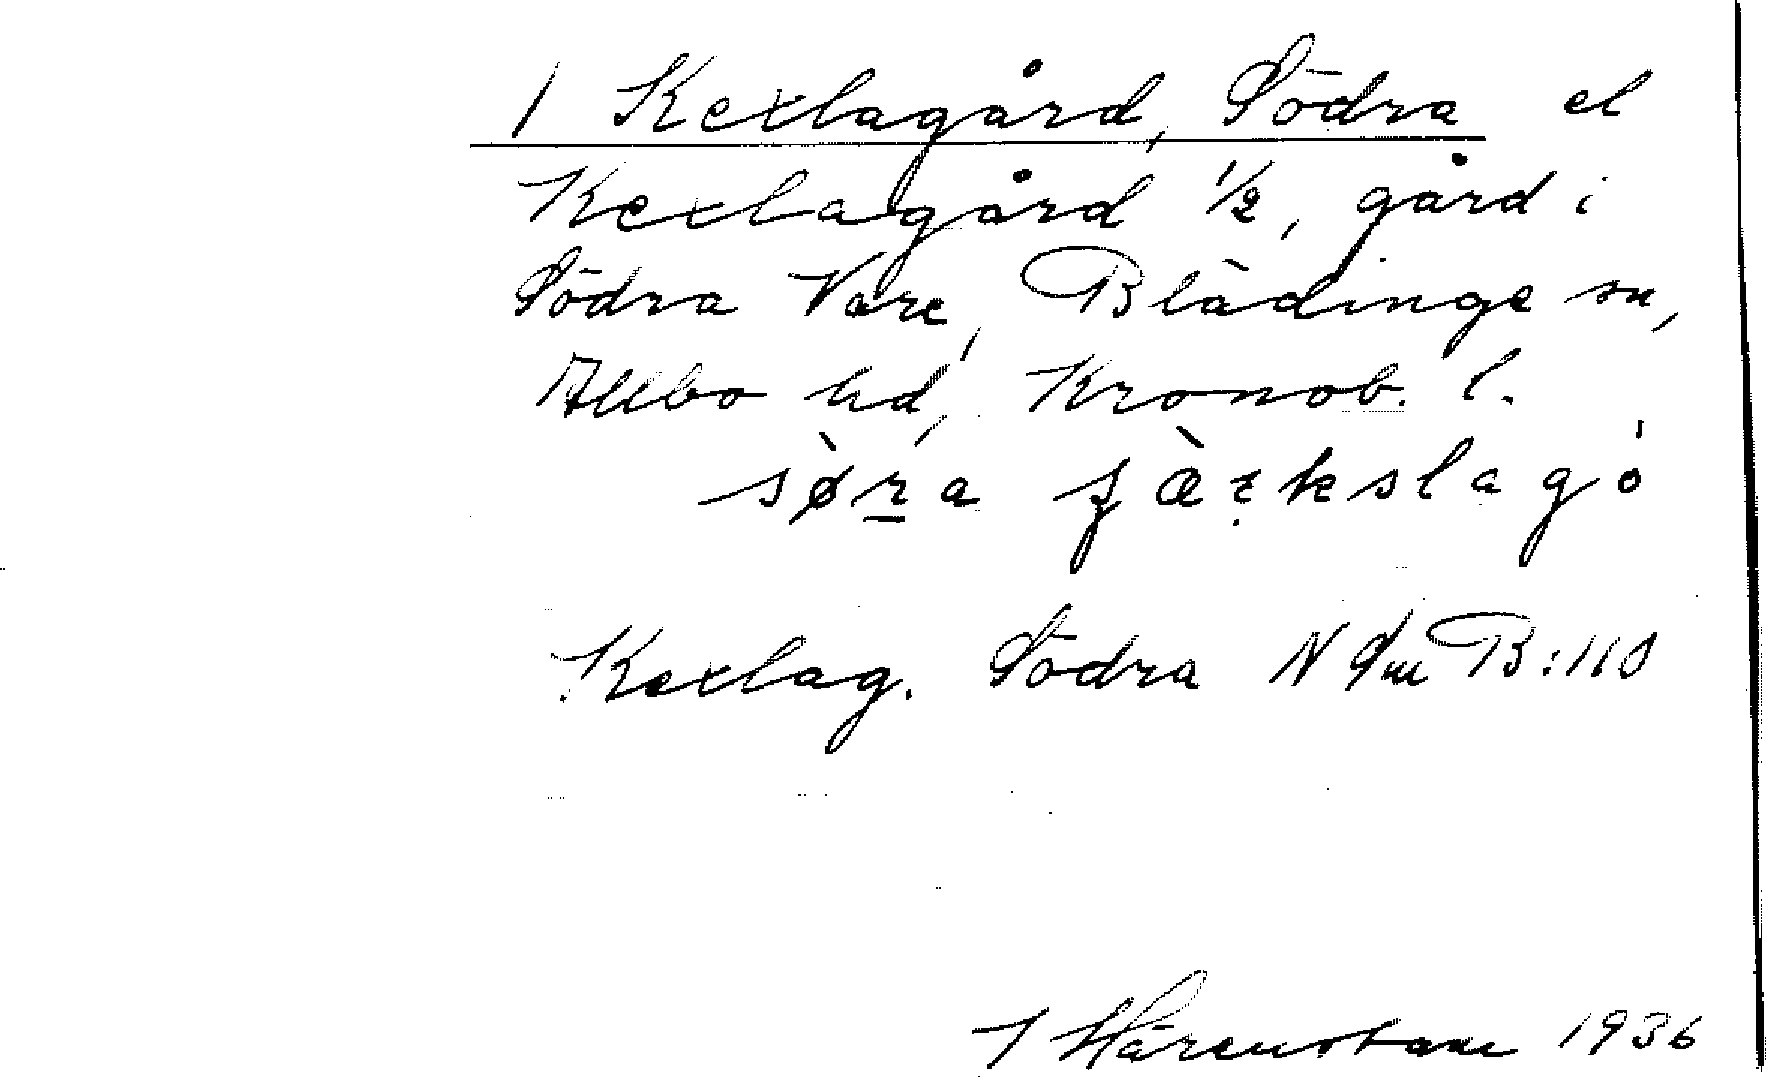 1 Kexlagård, Södra el
Kexlagård 1/2, gård i
Södra Vare, Blädinge sn,
Allbo hd, Kronob. l.
sø̀ra ʂæ̀rkslagó
Kexlag. Södra N Sm B:110
J Härenstam 1936